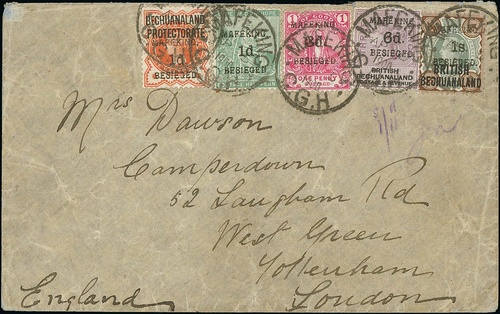 BECHUANALAND
PROTECTORATE
MAFEKING,
1d
BESIEGED.
MAFEKING,
1d
BESIEGED.
1 1
MAFEKING,
3d
BESIEGED.
ONE PENNY
MAFEKING,
6d.
BESIEGED.
BRITISH
BECHUANALAND
POSTAGE & REVENUE
1s
BESIEGED.
BRITISH
BECHUANALAND
MAFEKING
C.G.H.
Mrs Dawson
Camperdown
52 Langham Rd
West Green
Tottenham
London
England